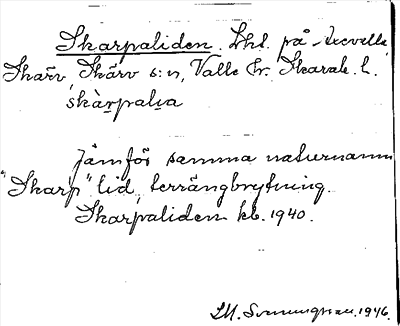 Skarpaliden. Lht. på Axevalla
Skärv, Skärv s:n, Valle hr. Skarab. l.
skàrpalia
Jämför samma naturnamn
"Skarp" lid, terrängbrytning.
Skarpaliden kb. 1940.
1946.